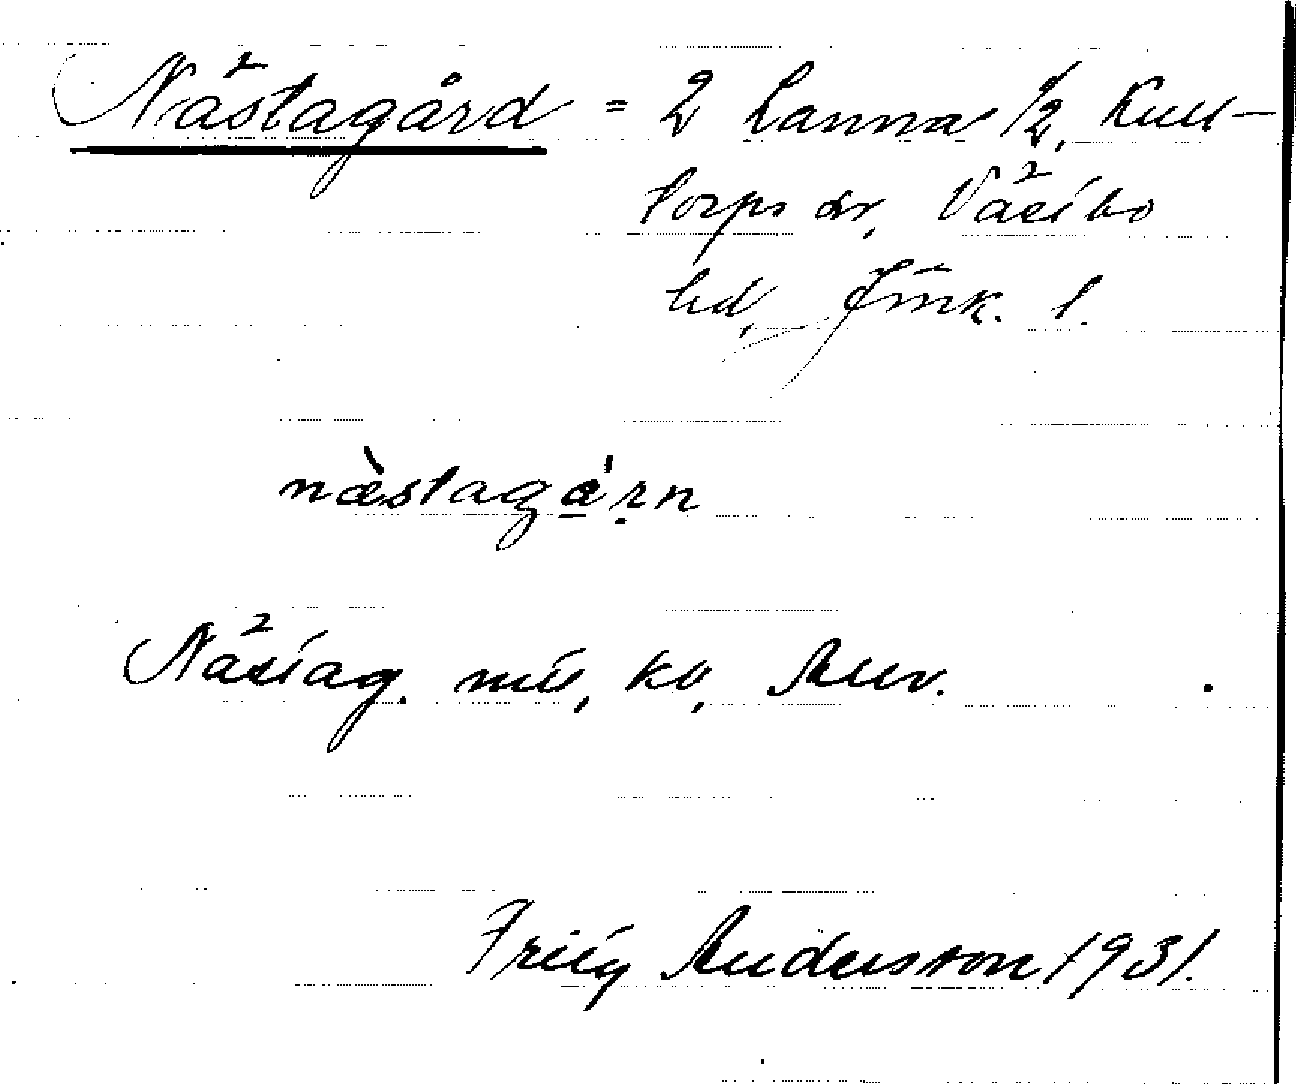 Nästagård = 2 Lanna 1/2, Kull-
torps sr, Västbo
hd, Jönk. l.
næstagårn
Nästag. ko,
Andersson 1931.